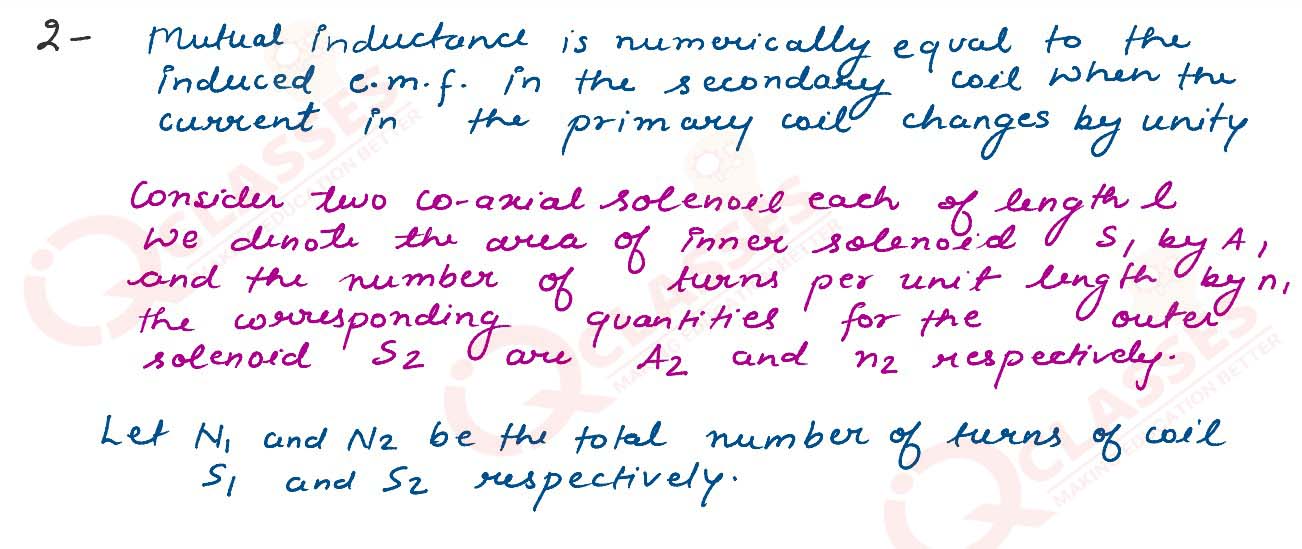 2- Mutual inductance is numerically equal to the
induced e.m.f. in the secondary coil when the
current in the primary coil changes by unity
Consider two co-axial solenoid each of length l
We denote the area of inner solenoid S1 by A1
and the number of turns per unit length by n1
the corresponding quantities for the outer
solenoid S2 are A2 and n2 respectively.
Let N1 and N2 be the total number of turns of coil
S1 and S2 respectively.